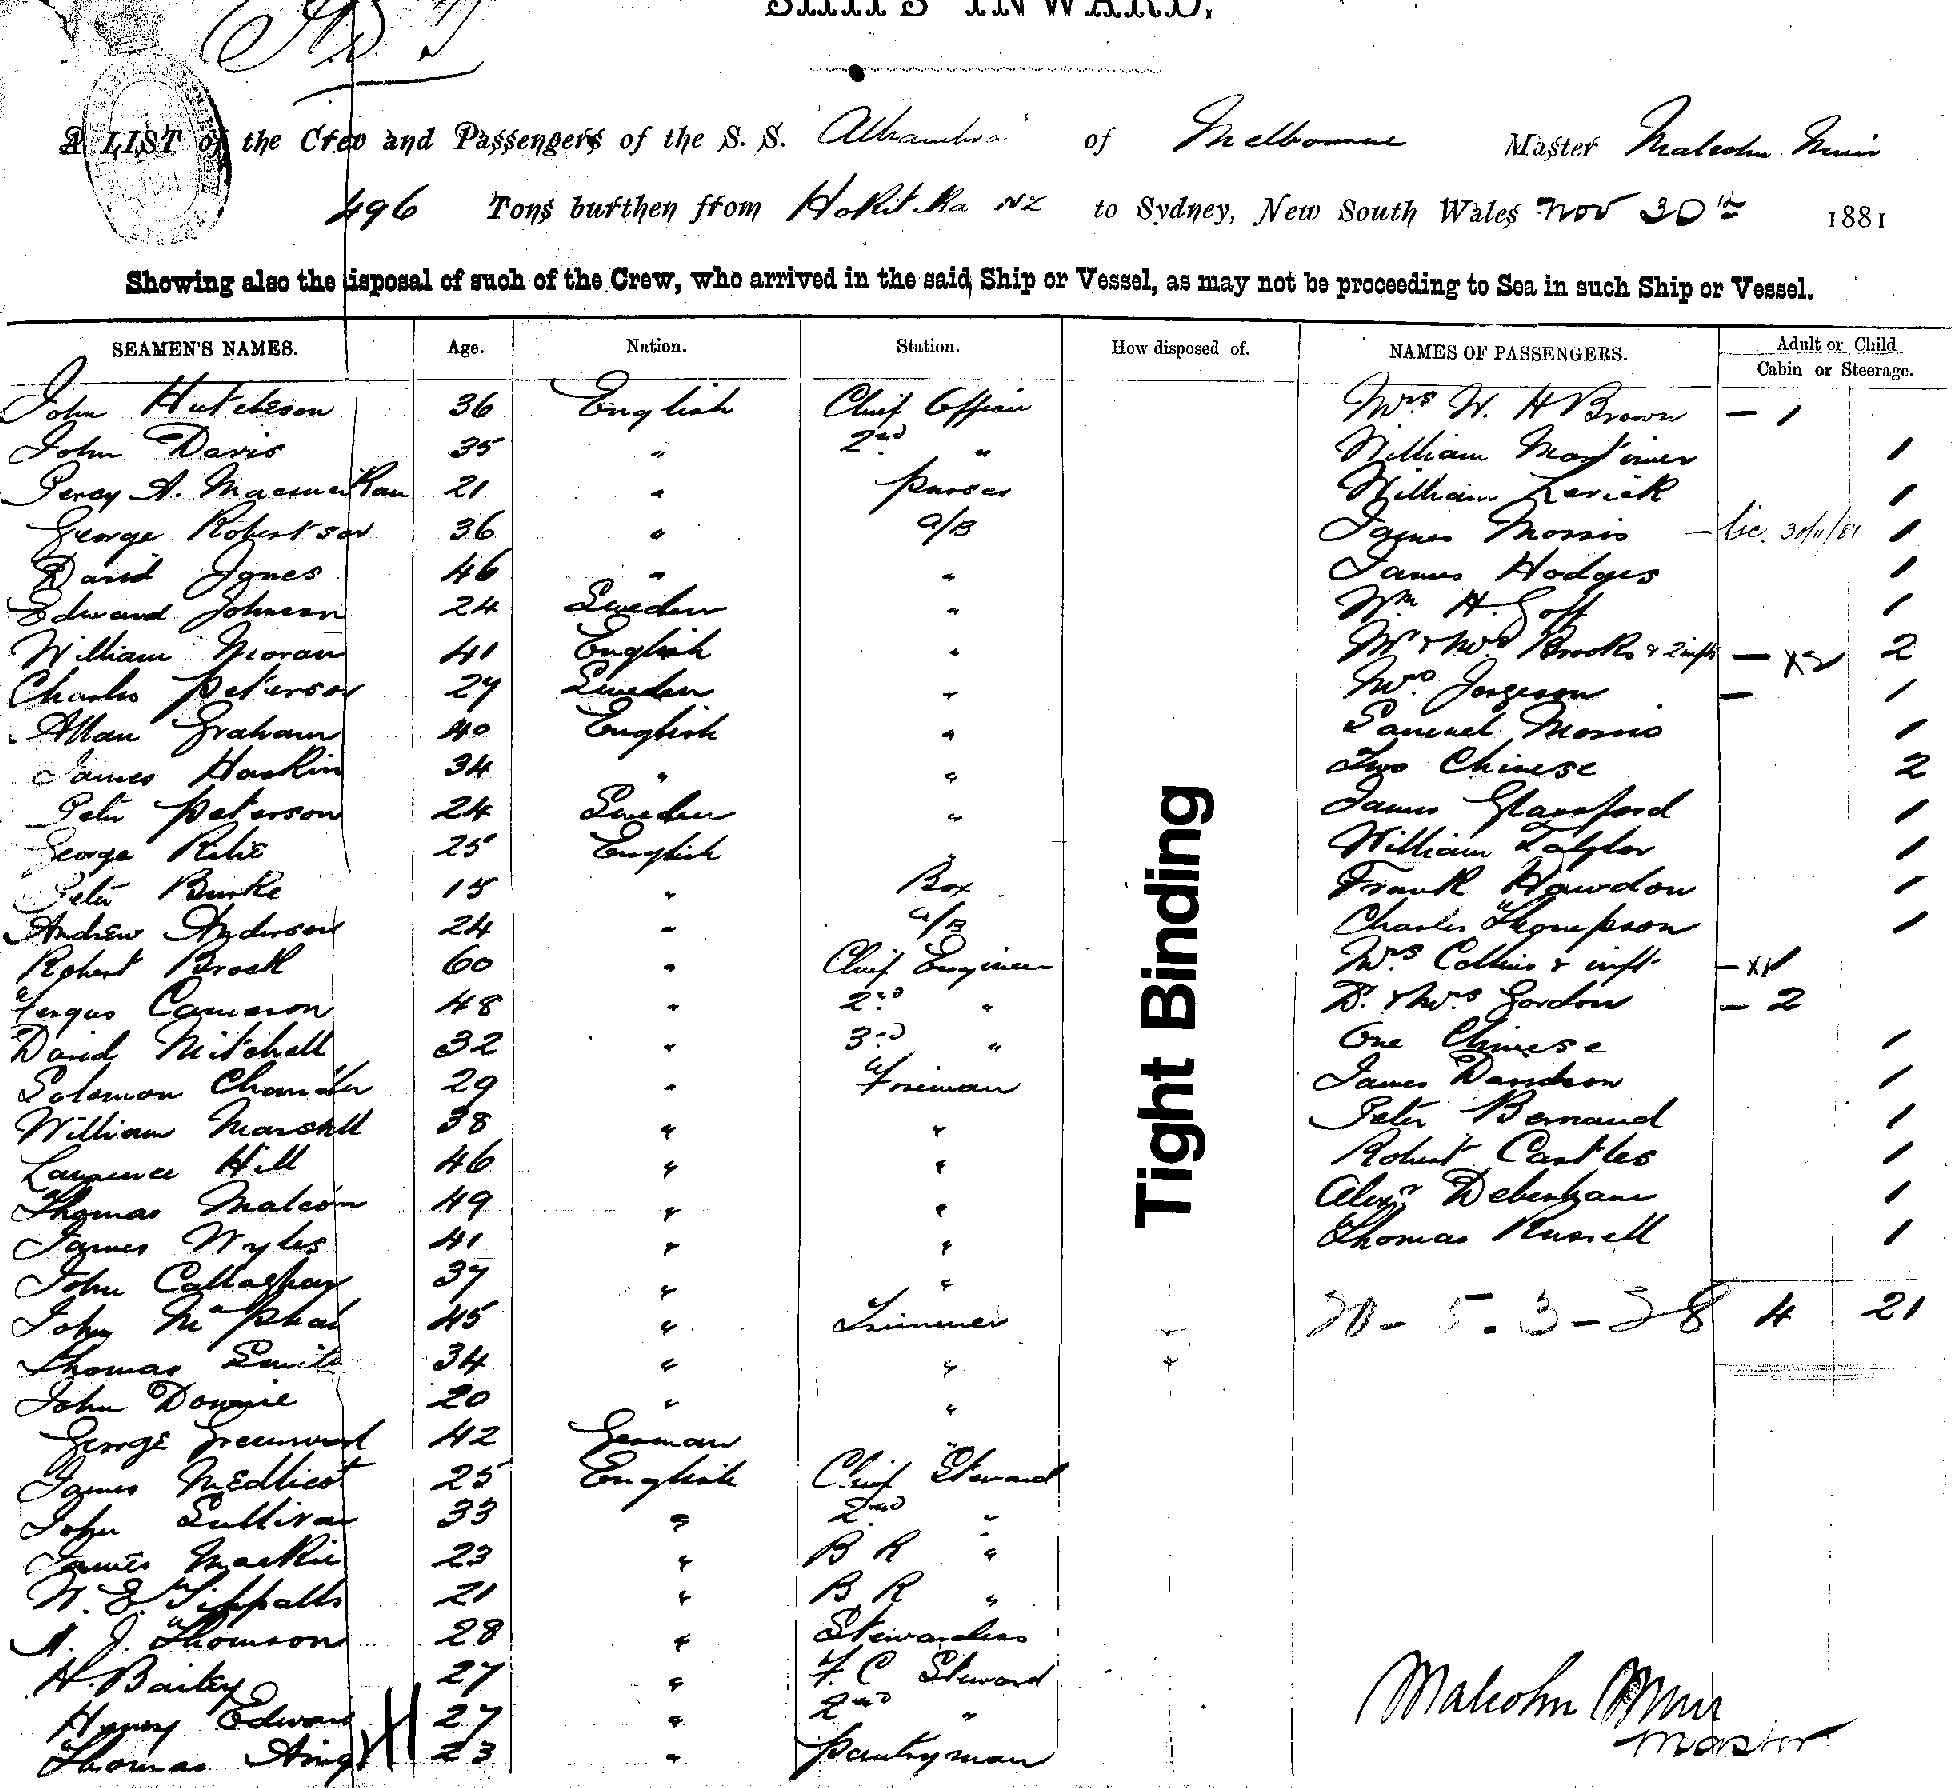 SHIPS INWARD.
A LIST of the Crew and Passengers of the S. S. Alhambra of Melbourne Master Malcolm Muir
496 Tons burthen from Hokitika NZ to Sydney, New South Wales Nov 30th 1881
Showing also the disposal of such of the Crew, who arrived in the said Ship or Vessel, as may not be proceeding to Sea in such Ship or Vessel.
SEAMEN'S NAMES. Age. Nation. Station. How disposed of. NAMES OF PASSENGERS. Adult or Child
Cabin or Steerage.
John Hutcheson 36 English Chief Officer Mrs W. H Brown – 1
John Davis 35 " 2nd " William Mortimer 1
Percy A. 21 " Purser William 1
George Robertson 36 " a/B James Morris 1
David Jones 46 " " James Hodges 1
Edward Johnson 24 Sweden " Wm H. Goff 1
William Moran 41 English " Mr & Mrs Brooks & 2 infts – 2
Charles Peterson 27 Sweden " Mrs Jorgeson – 1
Allan Graham 40 English " Samuel Morris 1
James Haskin 34 " " Two Chinese 2
Peter Peterson 24 Sweden " James Glassford 1
George 25 English " William Taylor 1
Peter Burke 15 " Boy Frank Hawdon 1
Andrew Anderson 24 " a/B Charles Thompson 1
Robert Brock 60 " Chief Engineer Mrs Collins & inft – 1
Fergus Cameron 48 " 2nd " D. & Mrs Gordon – 2
David Mitchell 32 " 3rd " One Chinese 1
Solomon Chandler 29 " Fireman James Davidson 1
William Marshall 38 " " Peter Bernaud 1
Lawrence Hill 46 " " Robert Castles 1
Thomas Malcom 49 " " Alexr Debenham 1
James Wyles 41 " " Thomas Russell 1
John Callaghan 37 " "
John McPhail 45 " Trimmer 20 – 5 . 3 – 28 4 21
Thomas Smith 34 " "
John Downie 20 " "
George Greenwood 42 German "
James Medlicot 25 English Chief Steward
John Sullivan 33 " 2nd "
James Mackie 23 " B R "
W. E. 21 " B R "
A. J. Thomson 28 " Stewardess
H. Bailey 27 " F. C Steward
Henry Edwards 27 " 2nd "
Thomas 23 " Pantryman
Tight Binding
Malcolm Muir
Master